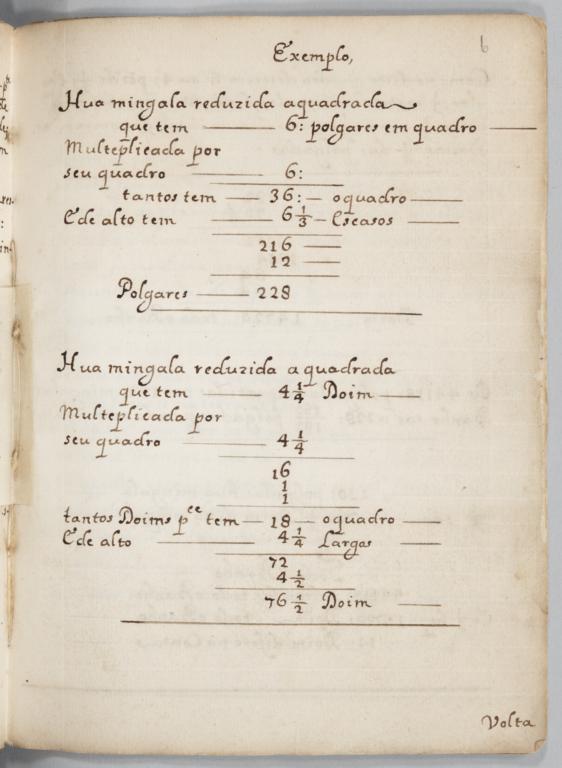 6
Exemplo,
Hua mingala reduzida aquadrada
que tem 6: polgares em quadro
Multeplicada por
seu quadro 6:
tantos tem 36: oquadro
E de alto tem 6 1/3 Escasos
216
12
Polgares 228
Hua mingala reduzida a quadrada
que tem 4 1/4 Doim
Multeplicada por
seu quadro 4 1/4
16
1
1
tantos Doims p.ee tem 18 oquadro
E de alto 4 1/4 Largos
72
4 1/2
76 1/2 Doim
Volta